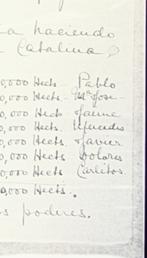 a haciendo
Catalina
0,000 Hects Pablo
0,000 Hects Mª Jose
0,000 Hects Jaime
0,000 Hects. Lourdes
0,000 Hects Javier
0,000 Hects Dolores
0,000 Hects Carlitos.
0,000 Hects.
s poderes.